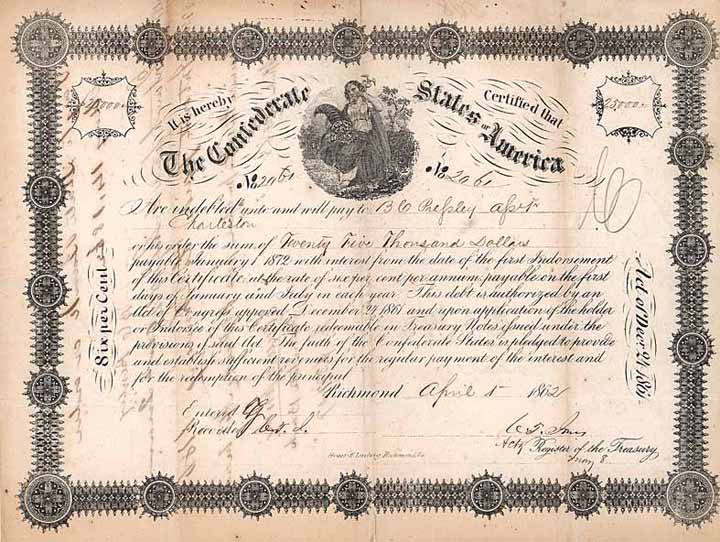 $25000.00
25000.00
It is hereby Certified that
The Confederate States of America
No. 2061 No. 2061
Are indebted unto and will pay to B C Pressley Asst
Charleston
or his order the sum of Twenty Five Thousand Dollars
payable January 1 1872 with interest from the date of the first Indorsement
of this Certificate at the rate of six per cent per annum, payable on the first
days of January and July in each year. This debt is authorized by an
Act of Congress approved December 24 1861 and upon application of the holder
or Indorsee of this Certificate redeemable in Treasury Notes issued under the
provisions of said Act. The faith of the Confederate States is pledged to provide
and establish sufficient revenues for the regular payment of the interest and
for the redemption of the principal.
Richmond April 1 1862
Entered
Recorded
Actg Register of the Treasury
May 8
Hoyer & Ludwig Richmond, Va.
Six per Cent
Act of Decr. 24, 1861